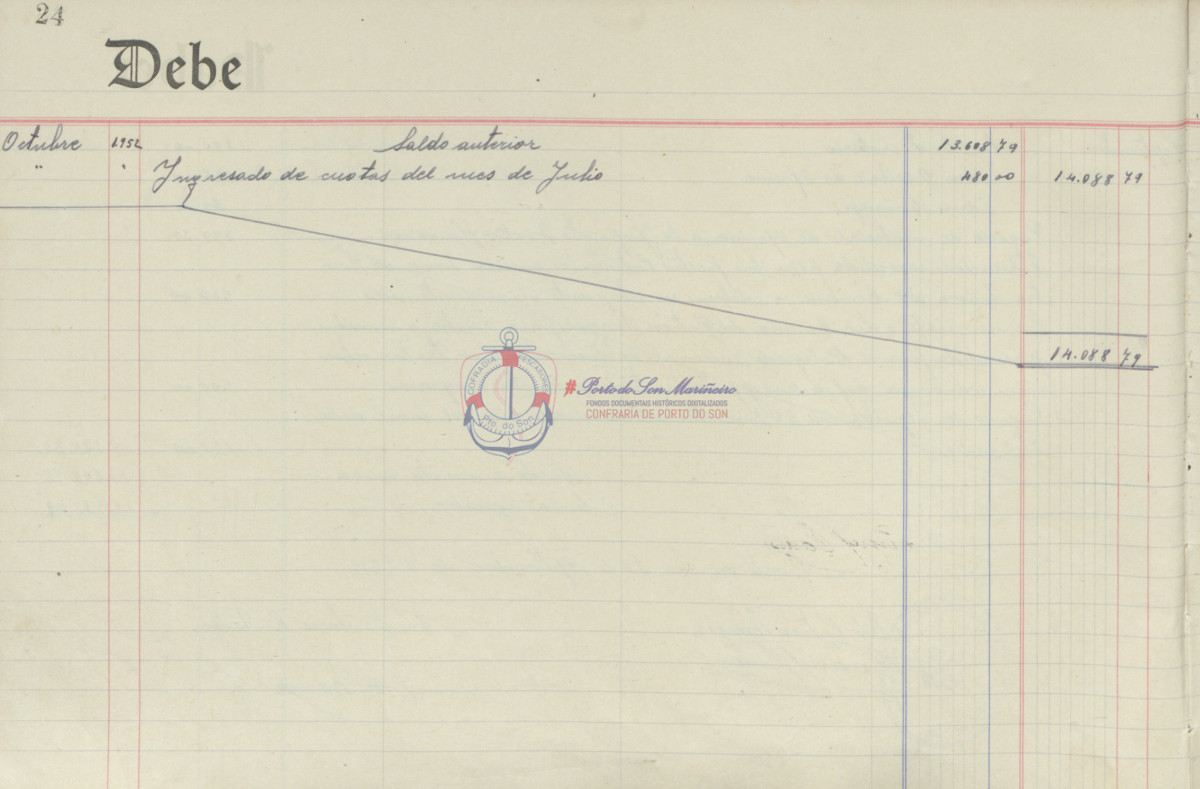 24
Debe
Octubre 1952 Saldo anterior 13.608 79
" " Ingresado de cuotas del mes de Julio 480 00 14.088 79
14.088 79
COFRADIA PESCADORES
Pto. do Son
# Porto do Son Mariñeiro
FONDOS DOCUMENTAIS HISTÓRICOS DIXITALIZADOS
CONFRARIA DE PORTO DO SON